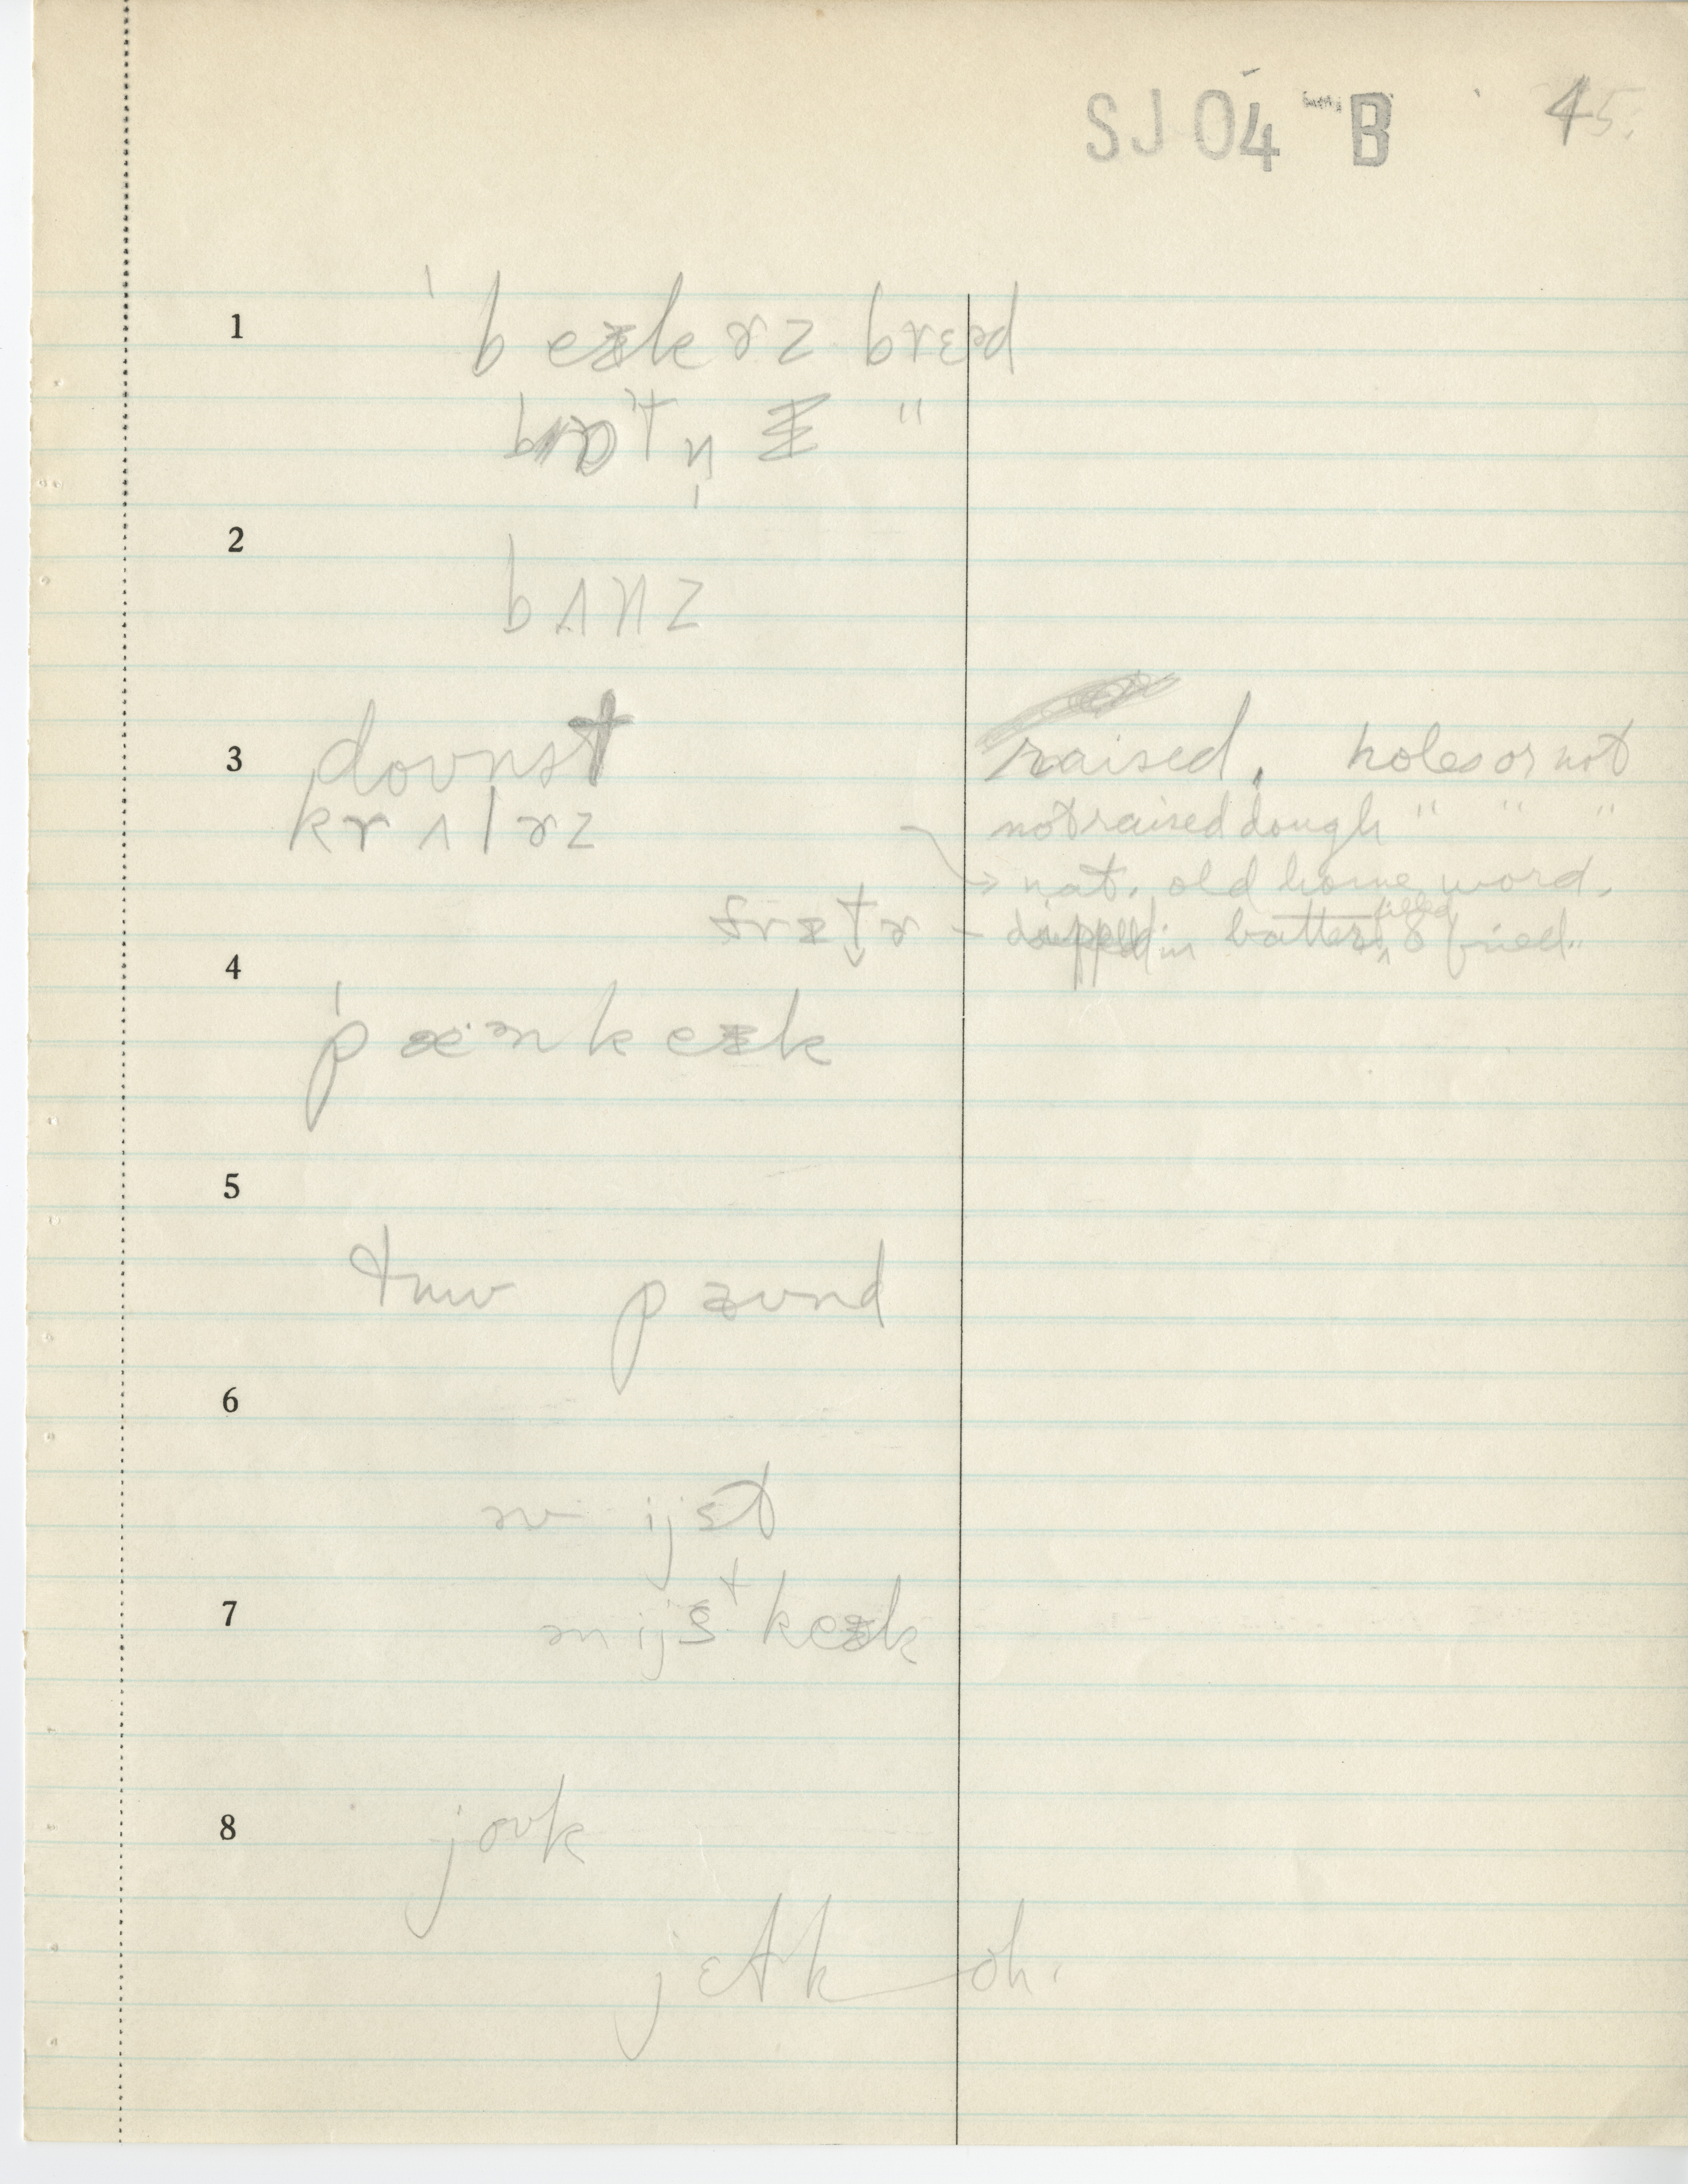 SJ 04 B 45.
1 ˈbeᵻkɚz brɛəd
bɔtn̩ "
2 bʌnz
3 dounət raised, holes or not
krʌlɚz not raised dough " " "
→ nat. old home word.
frɪt̬ɚ – dipped in batter, filled & fried.
4 ˈpæənkeᵻk
5 tuw pæund
6 əv ijst
7 ən ijst keᵻk
8 jouk
jɛlk oh.